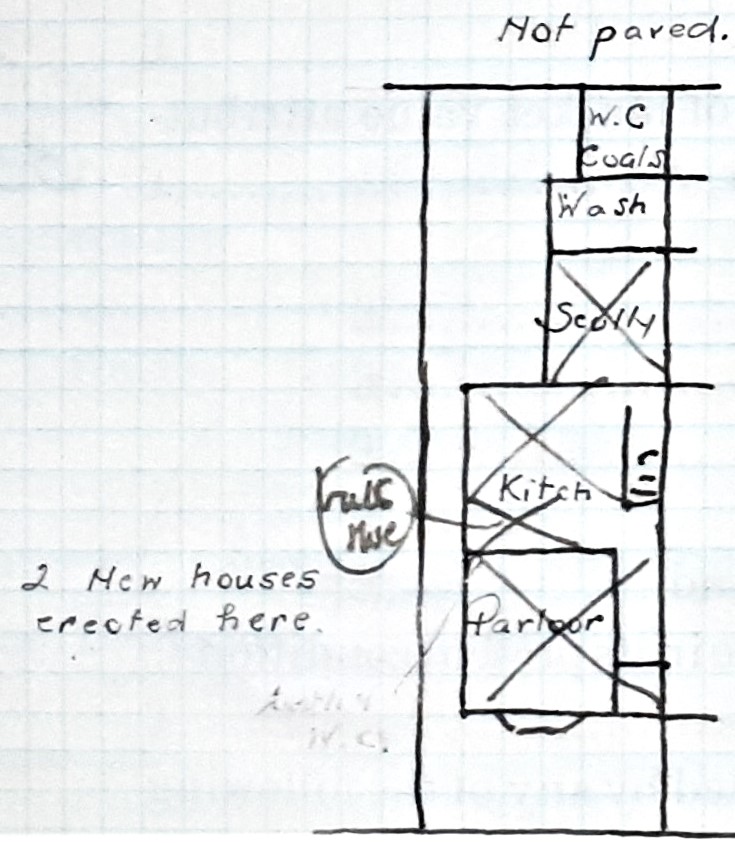 Not paved.
W.C
Coals
Wash
Scully
Kitch
2 New houses
erected here.
Parlour
W.C.